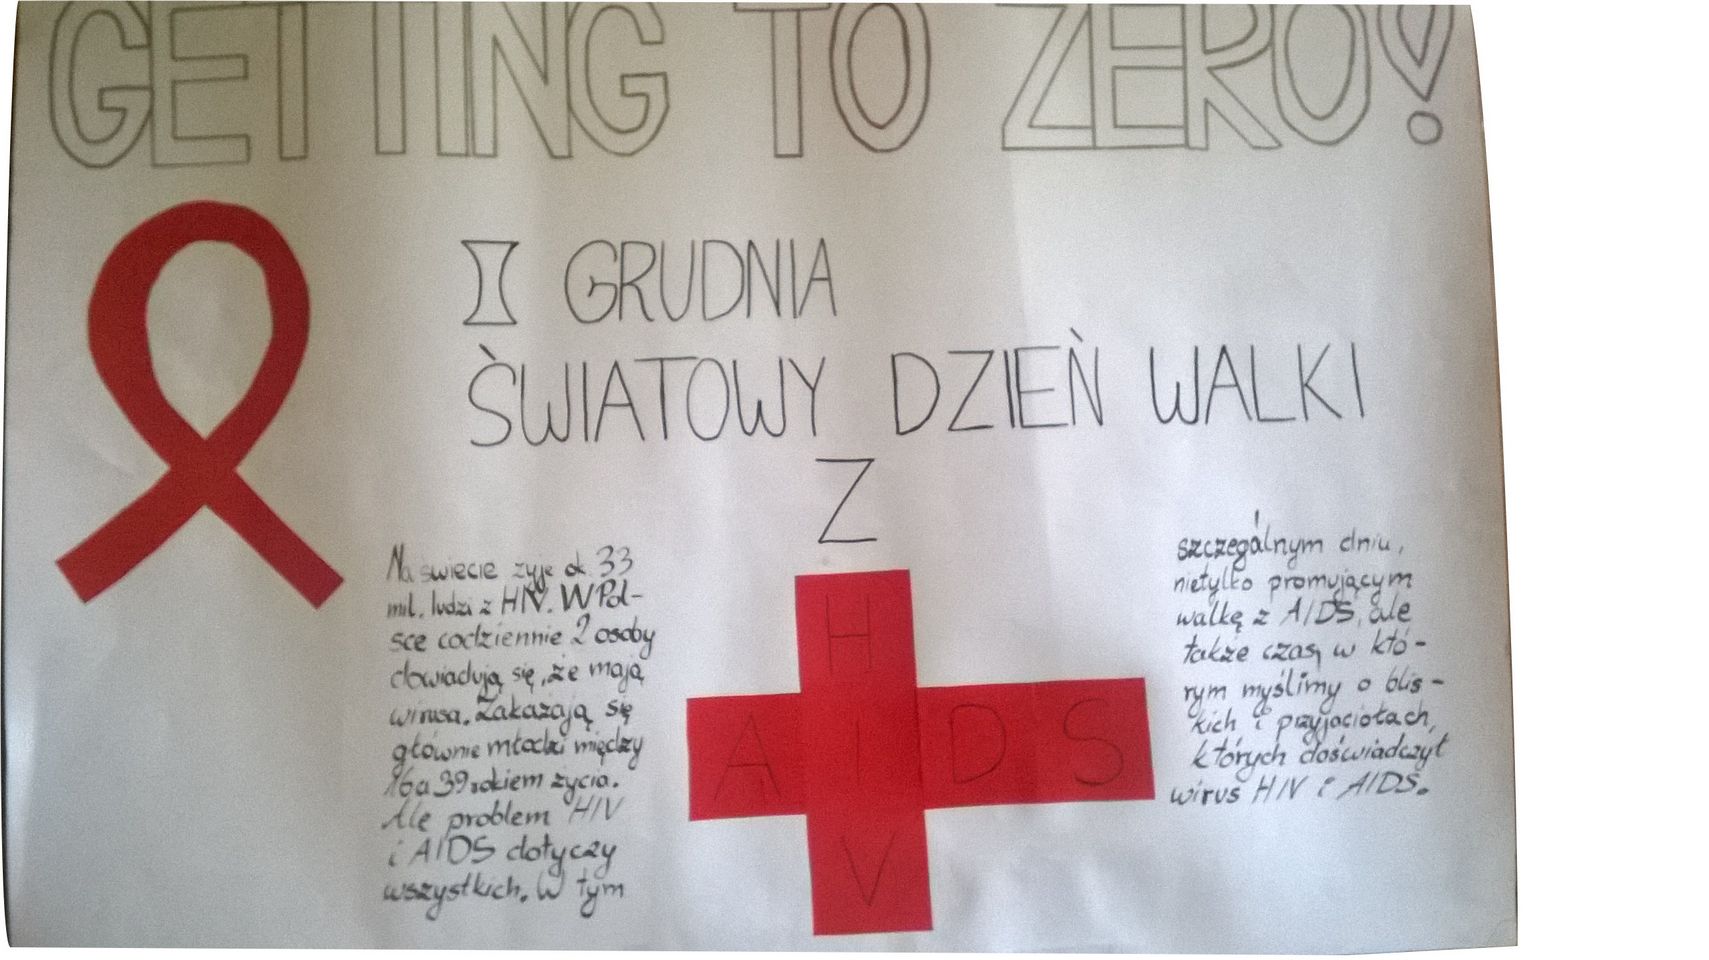 GETTING TO ZERO!
I GRUDNIA
ŚWIATOWY DZIEŃ WALKI
Z
HIV
AIDS
Na świecie żyje ok. 33
mil. ludzi z HIV. W Pol-
sce codziennie 2 osoby
dowiadują się, że mają
wirusa. Zakażają się
głównie młodzi między
16 a 39 rokiem życia.
Ale problem HIV
i AIDS dotyczy
wszystkich. W tym
szczególnym dniu,
nietylko promującym
walkę z AIDS, ale
także czas, w któ-
rym myślimy o blis-
kich i przyjaciołach,
których doświadczył
wirus HIV i AIDS.